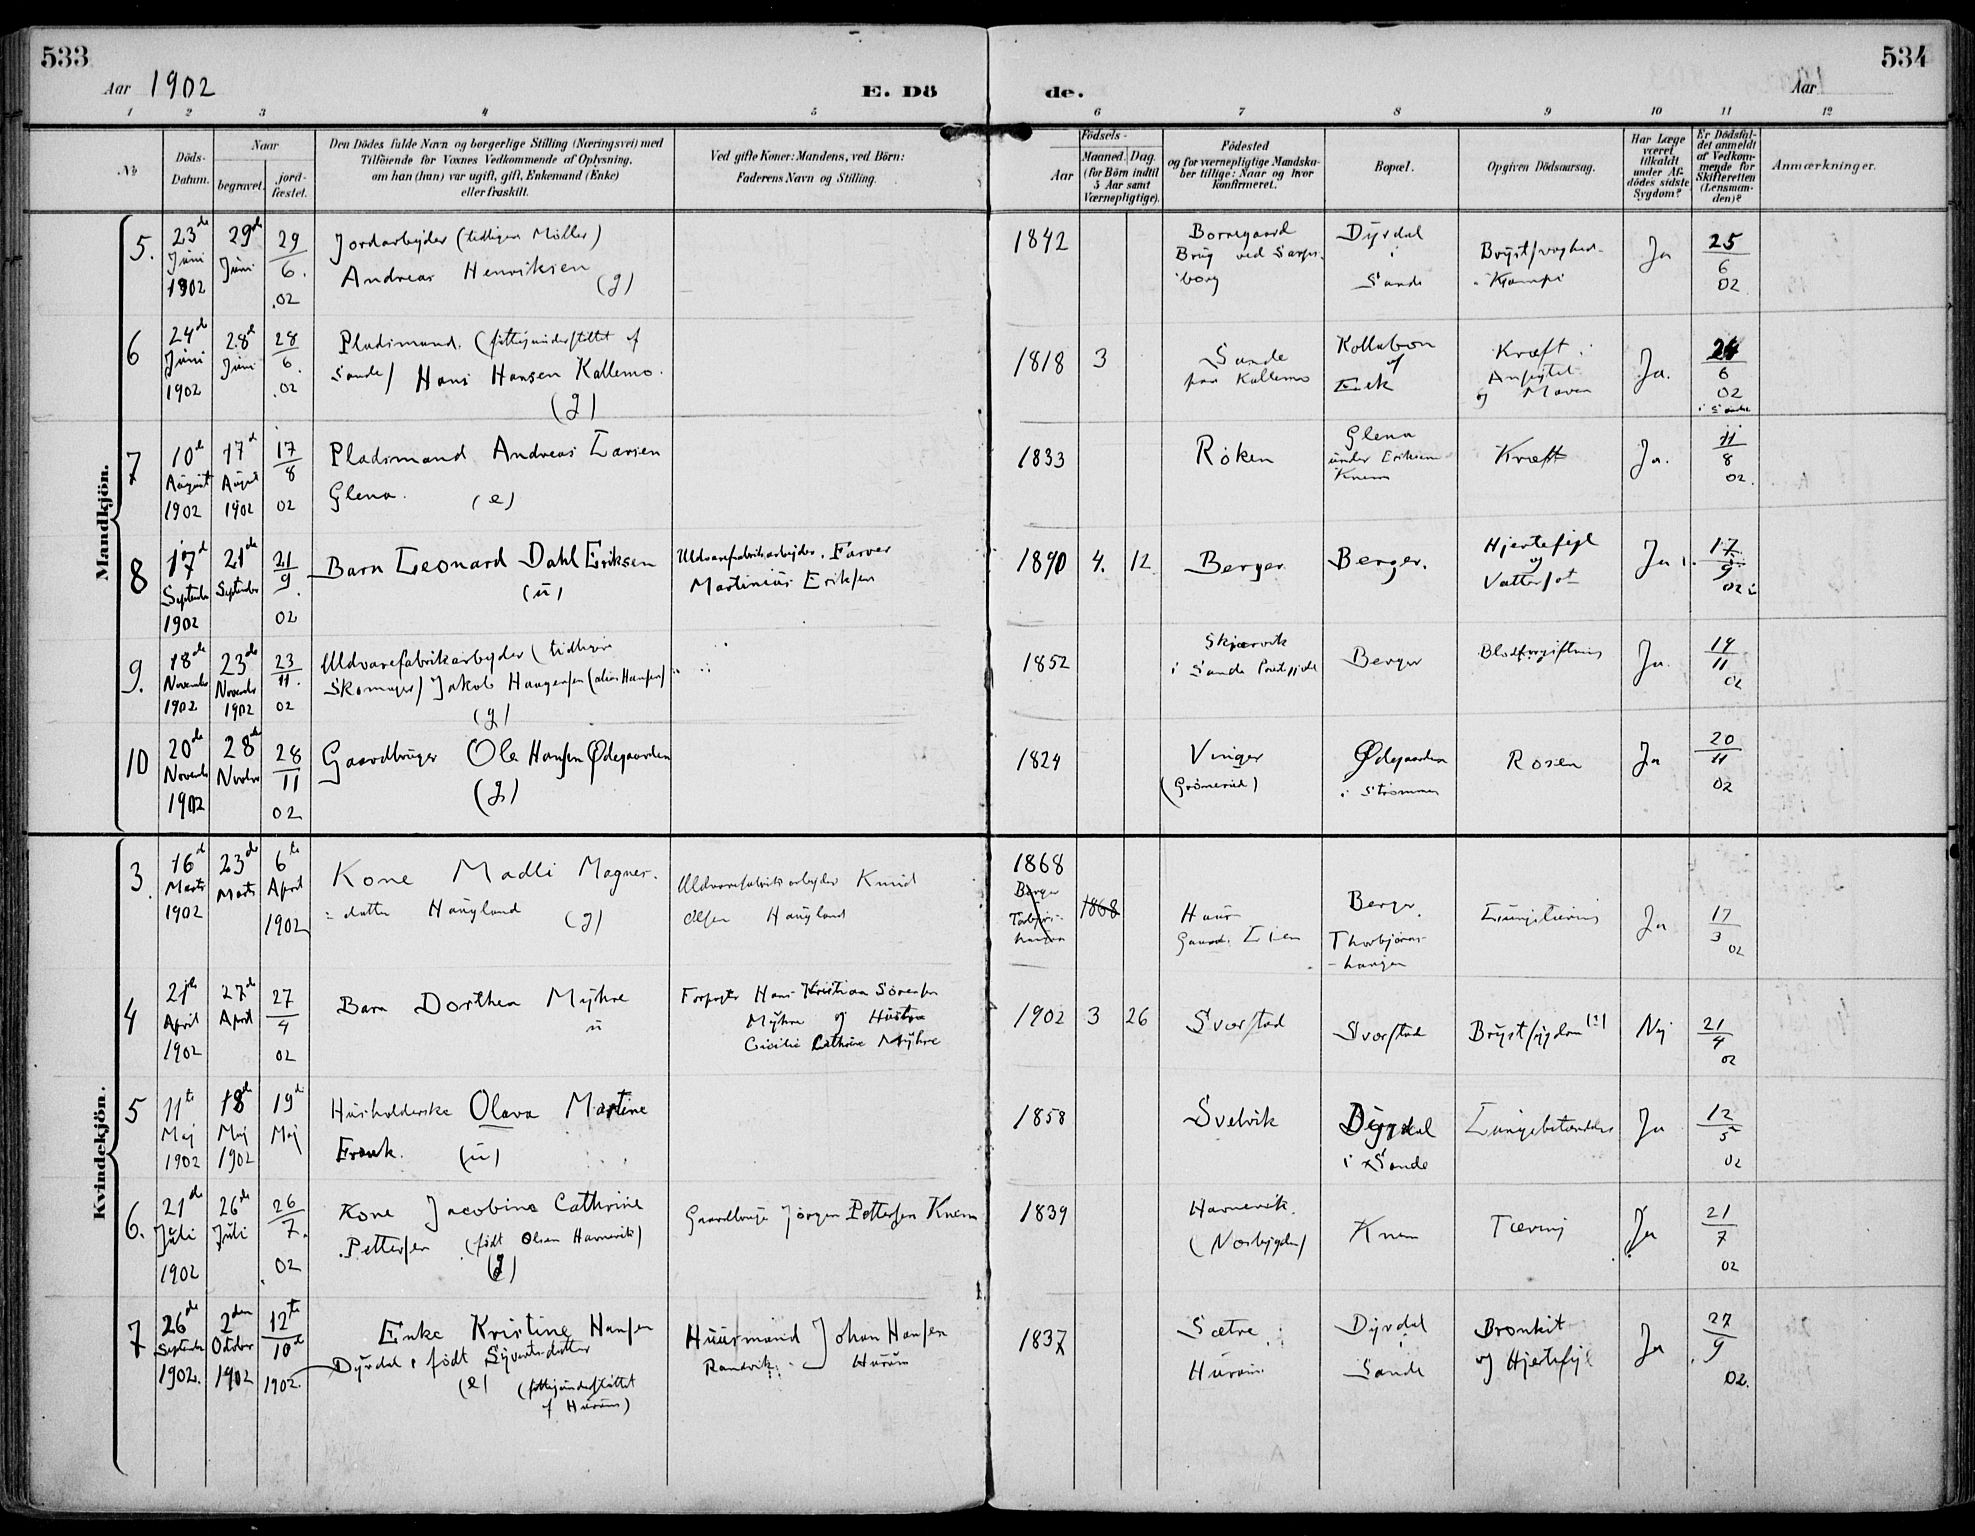 533
Aar 1902
E. Dö
de.
534
Aar
1 2 3 4 5 6 7 8 9 10 11 12
№
Döds-Datum.
Naar
begravet.
jord-fæstet.
Den Dödes fulde Navn og borgerlige Stilling (Næringsvei) med
Tilföiende for Voxnes Vedkommende af Oplysning,
om han (hun) var ugift, gift, Enkemand (Enke)
eller fraskilt.
Ved gifte Koner: Mandens, ved Börn:
Faderens Navn og Stilling.
Födsels-
Aar
Maaned. Dag.
(for Börn indtil
5 Aar samt
Værnepligtige).
Födested
og for værnepligtige Mandska-
ber tillige: Naar og hvor
konfirmeret.
Bopæl.
Opgiven Dödsaarsag.
Har Læge
været
tilkaldt
under Af-
dödes sidste
Sygdom?
Er Dödsfal-
det anmeldt
af Vedkom-
mende for
Skifteretten
(Lensman-
den)?
Anmærkninger.
Mandkjön.
5. 23de Juni 1902 29de Juni 29/6. 02
Jordarbejder (tidligere Møller)
Andreas Henriksen (g)
1842
Borregaard
Brug ved Sarps-
borg
Dyrdal
i
Sande
Ja
25/6 02
6 24de Juni 1902 28d Juni 28/6. 02
Pladsmand. (fattigunderstøttet af
Sande) Hans Hansen Kallemo.
(g)
1818 3
Sande
paa Kallemo
af
Eek
Kræft i
Ansigtet
og Maven
Ja.
24/6 02
i Sande
7 10de August 1902 17d August 1902 17/8 02
Pladsmand Andreas Larsen
Glena. (e)
1833
Røken
Glena
under Eriksen
Knem
Kræft
Ja.
11/8 02.
8 17d September 1902 21de September 21/9. 02
Barn Leonard Dahl Eriksen
(u)
Uldvarefabrikarbejder, Farver
Martinius Eriksen
1890 4. 12
Berger
Berger.
Hjertefejl
og
Vattersot
Ja
17/9 02
9. 18de November 1902 23de November 1902 23/11. 02
Uldvarefabrikarbejder (tidligere
Skomager) Jakob Haagensen (alias Hansen)
(g)
1852
Skjærvik
i Sande Præstegjeld
Berger
Blodforgiftning
Ja.
19/11 02
10 20de November 1902 28de Novbr 28/11 02
Gaardbruger Ole Hansen Ødegaarden
(g)
1824
Vinger
Ødegaarden
i Strømmen
Rosen
Ja
20/11 02
Kvindekjön.
3. 16d Marts 1902 23de Marts 6te April 1902
Kone Madli Magnes-
datter Haugland (g)
Uldvarefabrikarbejder Knud
Olsen Haugland
1868
Berger
1868
Gaard. Lien
Berger.
Thorbjørns-
haugen
Lungetæring
Ja
17/3 02
4 21de April 1902 27de April 27/4 02
Barn Dorthea Myhre
u
Forpagter Hans Kristian Sørensen
Myhre og Hustru
Cicilie Cathrine Myhre
1902 3 26
Svarstad
Svarstad
Brystsygdom (?)
Nej
21/4 02
5 11te Maj 1902 18de Maj 1902 19d Maj
Husholderske Olava Martine
Frank. (u)
1858
Svelvik
Dyrdal
i Sande
Lungebetændelse
Ja
12/5 02
6. 21de Juli 1902 26de Juli 26/7. 02
Kone Jacobine Cathrine
Pettersen (født Olsen Havnevik)
(g)
Gaardbruger Jørgen Pettersen Knem
1839
Havnevik.
(Nordbygden)
Knem
Tæring
Ja
21/7 02
7 26de September 1902. 2den Oktober 1902 12te/10d 1902.
Enke Kristine Hansen
Dyrdal, født Syvertsdatter
(e) (fattigunderstøttet
af Hurum)
Huusmand Johan Hansen
Ramvik, Hurum
1837
Sætre i
Hurum
Dyrdal
i
Sande
Bronkit
og Hjertefejl
Ja
27/9 02.